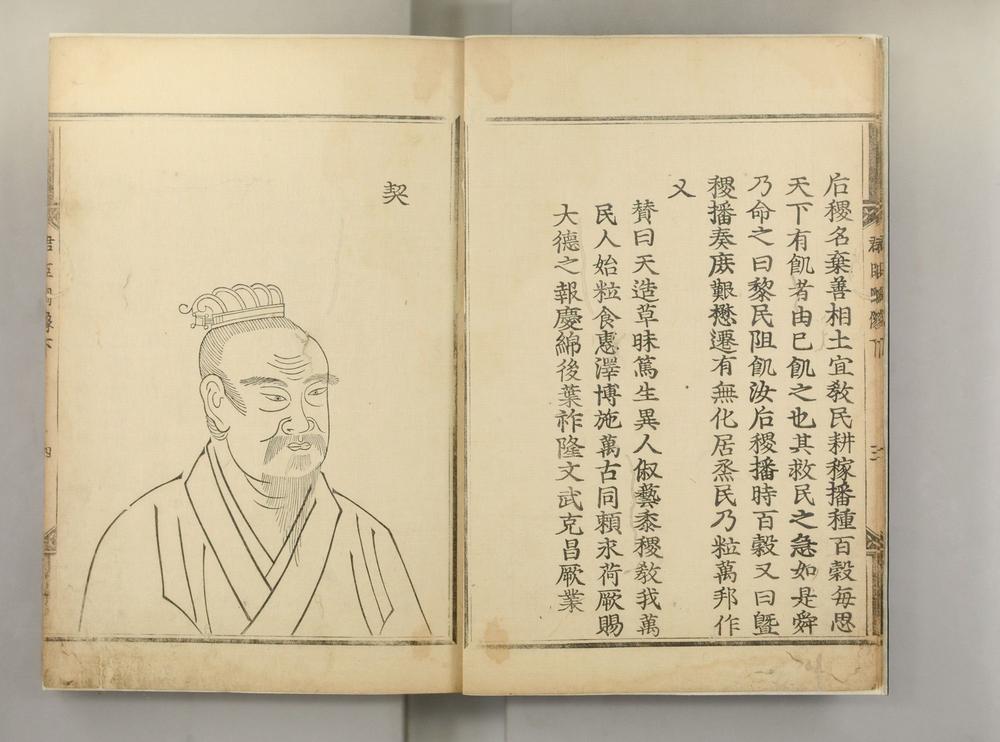 后稷名棄善相土宜敎民耕稼播種百穀每思
天下有飢者由己飢之也其救民之急如是舜
乃命之曰黎民阻飢汝后稷播時百穀又曰曁
稷播奏庶艱懋遷有無化居烝民乃粒萬邦作
乂
賛曰天造草昧篤生異人俶藝黍稷敎我萬
民人始粒食惠澤博施萬古同賴永荷厥賜
大德之報慶綿後葉祚隆文武克昌厥業
契
四